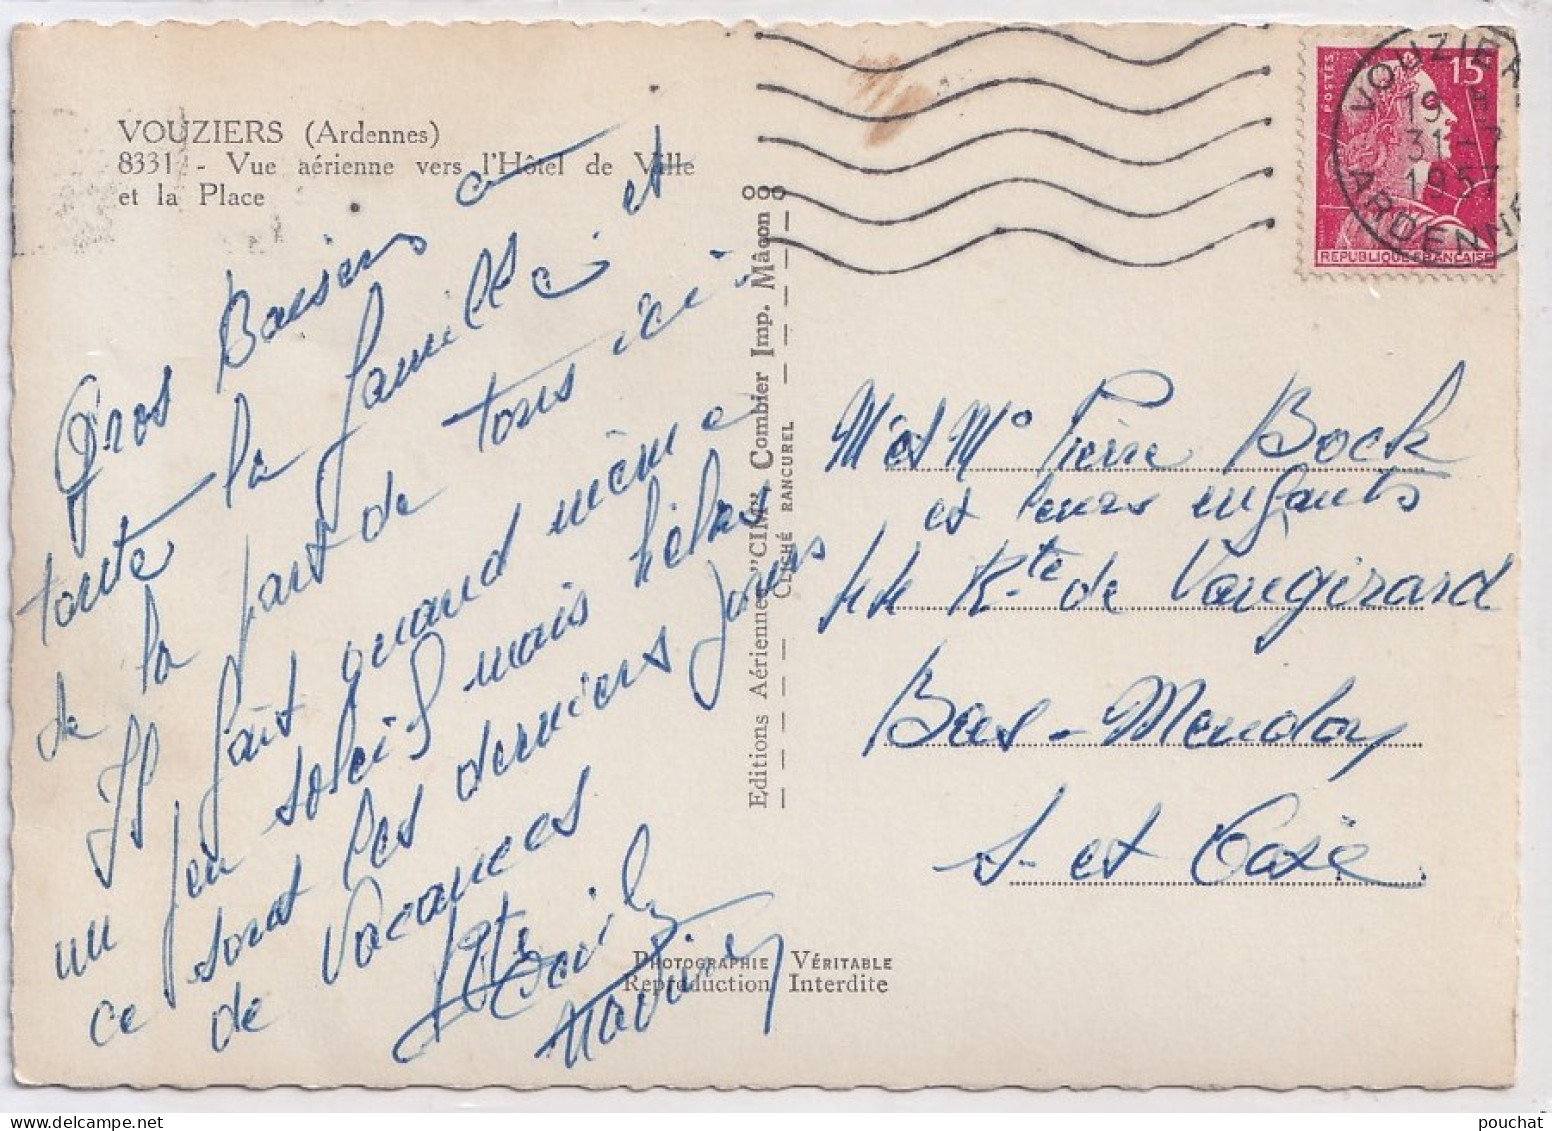 VOUZIERS (Ardennes)
8331 - Vue aérienne vers l'Hôtel de Ville
et la Place
Gros Baisers a
toute la famille et
de la part de tous ici
Il fait quand même
un peu soleil mais hélas
ce sont les derniers jours
de Vacances
Editions Aériennes "CIM", Combier Imp. Mâcon
CLICHÉ RANCUREL
POSTES
15
REPUBLIQUE FRANÇAISE
VOUZIE
19
31-7
1957
ARDENNE
Mr et Me Pierre Bock
et leurs enfants
44 Rte de Vaugirard
Bas-Meudon
S. et Oise
PHOTOGRAPHIE VÉRITABLE
Reproduction Interdite
pouchat